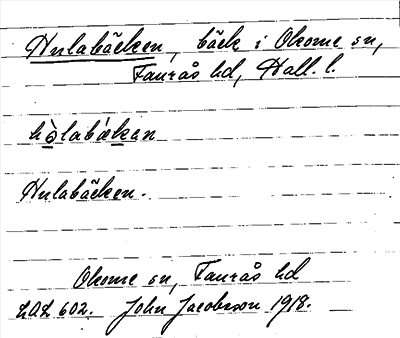 Hulabäcken, bäck i Okome sn,
Faurås hd, Hall. l.
Hulabäcken.
Okome sn, Faurås hd
LAL 602. John Jacobsson 1918.